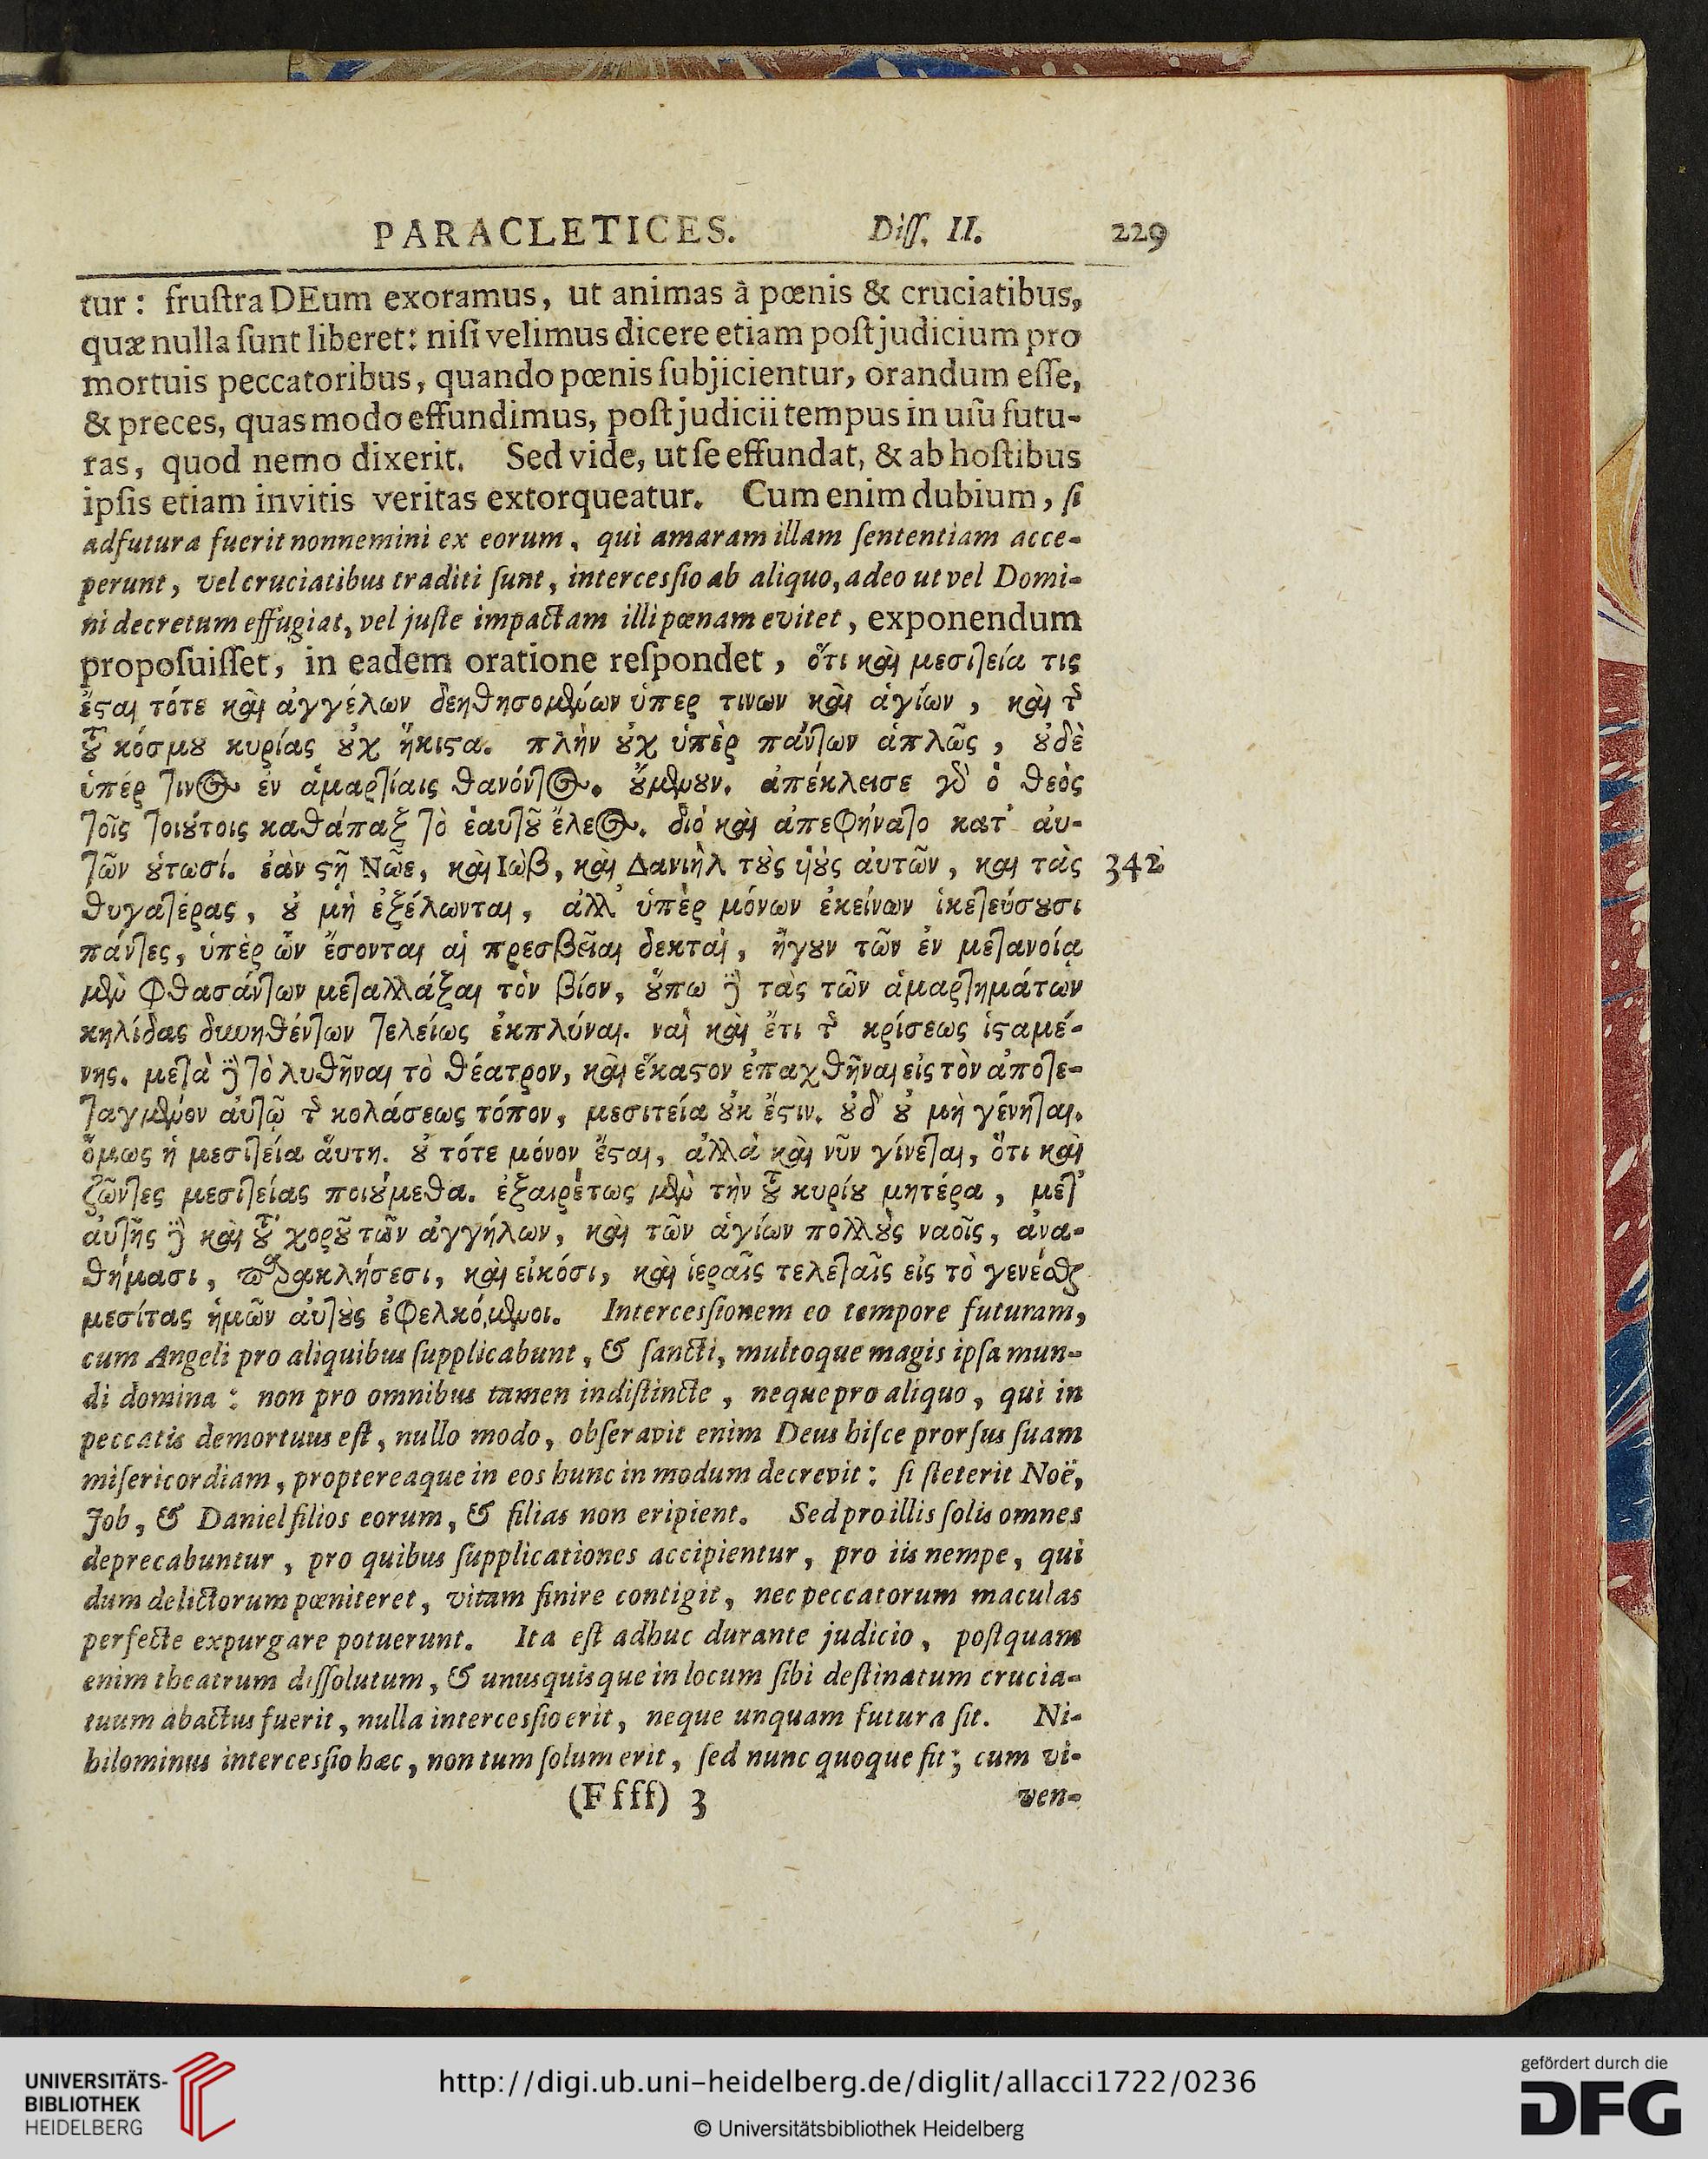 PARACLETICES. Diſſ. II. 229
tur: fruſtra DEum exoramus, ut animas â pœnis & cruciatibus,
quæ nulla ſunt liberet: niſi velimus dicere etiam poſt judicium pro
mortuis peccatoribus, quando pœnis ſubjicientur, orandum eſſe,
& preces, quas modo effundimus, poſt judicii tempus in uſu futu-
ras, quod nemo dixerit. Sed vide, ut ſe effundat, & ab hoſtibus
ipſis etiam invitis veritas extorqueatur. Cum enim dubium, ſi
adfutura fuerit nonnemini ex eorum, qui amaram illam ſententiam acce-
perunt, vel cruciatibus traditi ſunt, intercesſio ab aliquo, adeo ut vel Domi-
ni decretum effugiat, vel juſte impactam illi pœnam evitet, exponendum
propoſuiſſet, in eadem oratione reſpondet, ὅτι καὶ μεσιτεία τις
ἔϛαι τότε καὶ ἀγγέλων δεηθησομένων ὑπερ τινων καὶ ἁγίων, καὶ τῆς
τȣ͂ κόσμȣ κυρίας ȣ̓χ ἥκιϛα. πλὴν ȣ̓χ ὑπὲρ πάντων ἁπλῶς, ȣ̓δὲ
ὑπέρ τινος ἐν ἁμαρτίαις θανόντος. ȣ̓́μενȣν. ἀπέκλεισε γὸ ὁ θεὸς
τοῖς τοιȣ́τοις καθάπαξ τὸ ἑαυτȣ͂ ἔλεος. διό καὶ ἀπεφήνατο κατ' ἀυ-
τῶν ȣ́τωσί. ἐὰν ϛῇ Νῶε, καὶ Ιὼβ, καὶ Δανιὴλ τȣ̀ς ὑȣ̀ς ἀυτῶν, και τὰς 342
θυγατέρας, ȣ̓ μὴ ἐξέλωνται, ἀλλ' ὑπὲρ μόνων ἐκείνων ἱκετεύσȣσι
πάντες, ὑπὲρ ὧν ἔσονται αἱ πρεσβεῖαι δεκταὶ, ἤγȣν τῶν ἐν μετανοίᾳ
μὲν φθασάντων μεταλλάξαι τὸν βίον, ȣ̓́πω δὲ τὰς τῶν ἁμαρτημάτων
κηλίδας δυνηθέντων τελείως ἐκπλύναι. ναὶ καὶ ἔτι τῆς κρίσεως ἱϛαμέ-
νης. μετὰ δὲ τὸ λυθῆναι τὸ θέατρον, καὶ ἕκαϛον ἐπαχθῆναι εἰς τὸν ἀποτε-
ταγμένον ἀυτῷ τῆς κολάσεως τόπον, μεσιτεία ȣ̓κ ἔϛιν. ȣ̓δ' ȣ̓ μὴ γένηται.
ὅμως ἡ μεσιτεία ἅυτη. ȣ̓ τότε μόνον ἔϛαι, ἀλλὰ καὶ νῦν γίνεται, ὅτι καὶ
ζῶντες μεσιτείας ποιȣ́μεθα. ἐξαιρέτως μὲν τὴν τȣ͂ κυρίȣ μητέρα, μετ'
ἀυτῆς δὲ καὶ τȣ͂ χορȣ͂ τῶν ἀγγήλων, καὶ τῶν ἁγίων πολλȣ̀ς ναοῖς, ἀνα-
θήμασι, παρακλήσεσι, καὶ εἰκόσι, καὶ ἱεραῖς τελεταῖς εἰς τὸ γενέσθαι
μεσίτας ἡμῶν ἀυτȣ̀ς ἐφελκόμενοι. Intercesſionem eo tempore futuram,
cum Angeli pro aliquibus ſupplicabunt, & ſancti, multoque magis ipſa mun-
di domina: non pro omnibus tamen indiſtincte, neque pro aliquo, qui in
peccatis demortuus eſt, nullo modo, obſeravit enim Deus hiſce prorſus ſuam
miſericordiam, proptereaque in eos hunc in modum decrevit: ſi ſteterit Noë,
Job, & Daniel filios eorum, & filias non eripient. Sed pro illis ſolis omnes
deprecabuntur, pro quibus ſupplicationes accipientur, pro iis nempe, qui
dum delictorum pœniteret, vitam finire contigit, nec peccatorum maculas
perfecte expurgare potuerunt. Ita eſt adhuc durante judicio, poſtquam
enim theatrum diſſolutum, & unusquisque in locum ſibi deſtinatum crucia-
tuum abactus fuerit, nulla intercesſio erit, neque unquam futura ſit. Ni-
hilominus intercesſio hæc, non tum ſolum erit, ſed nunc quoque fit; cum vi-
(Ffff) 3 ven-
UNIVERSITÄTS-
BIBLIOTHEK
HEIDELBERG
http://digi.ub.uni-heidelberg.de/diglit/allacci1722/0236
© Universitätsbibliothek Heidelberg
gefördert durch die
DFG